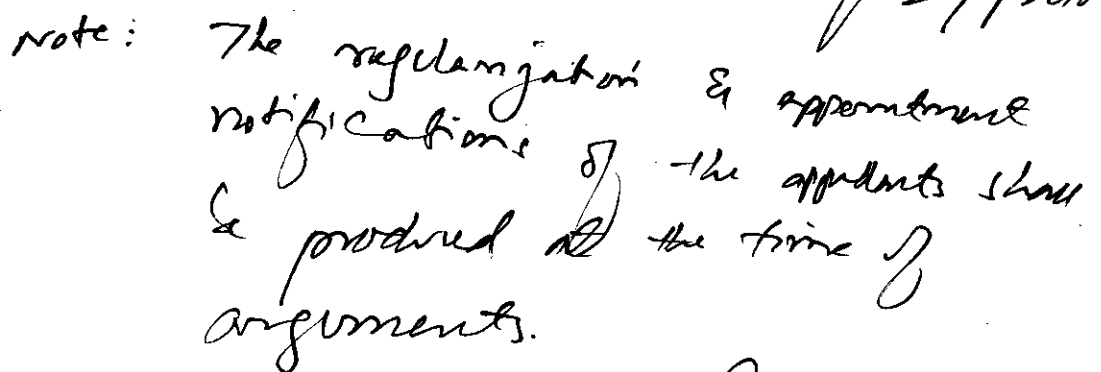 Note: The regularization & appointment
notifications of the appellants shall
be produced at the time of
arguments.